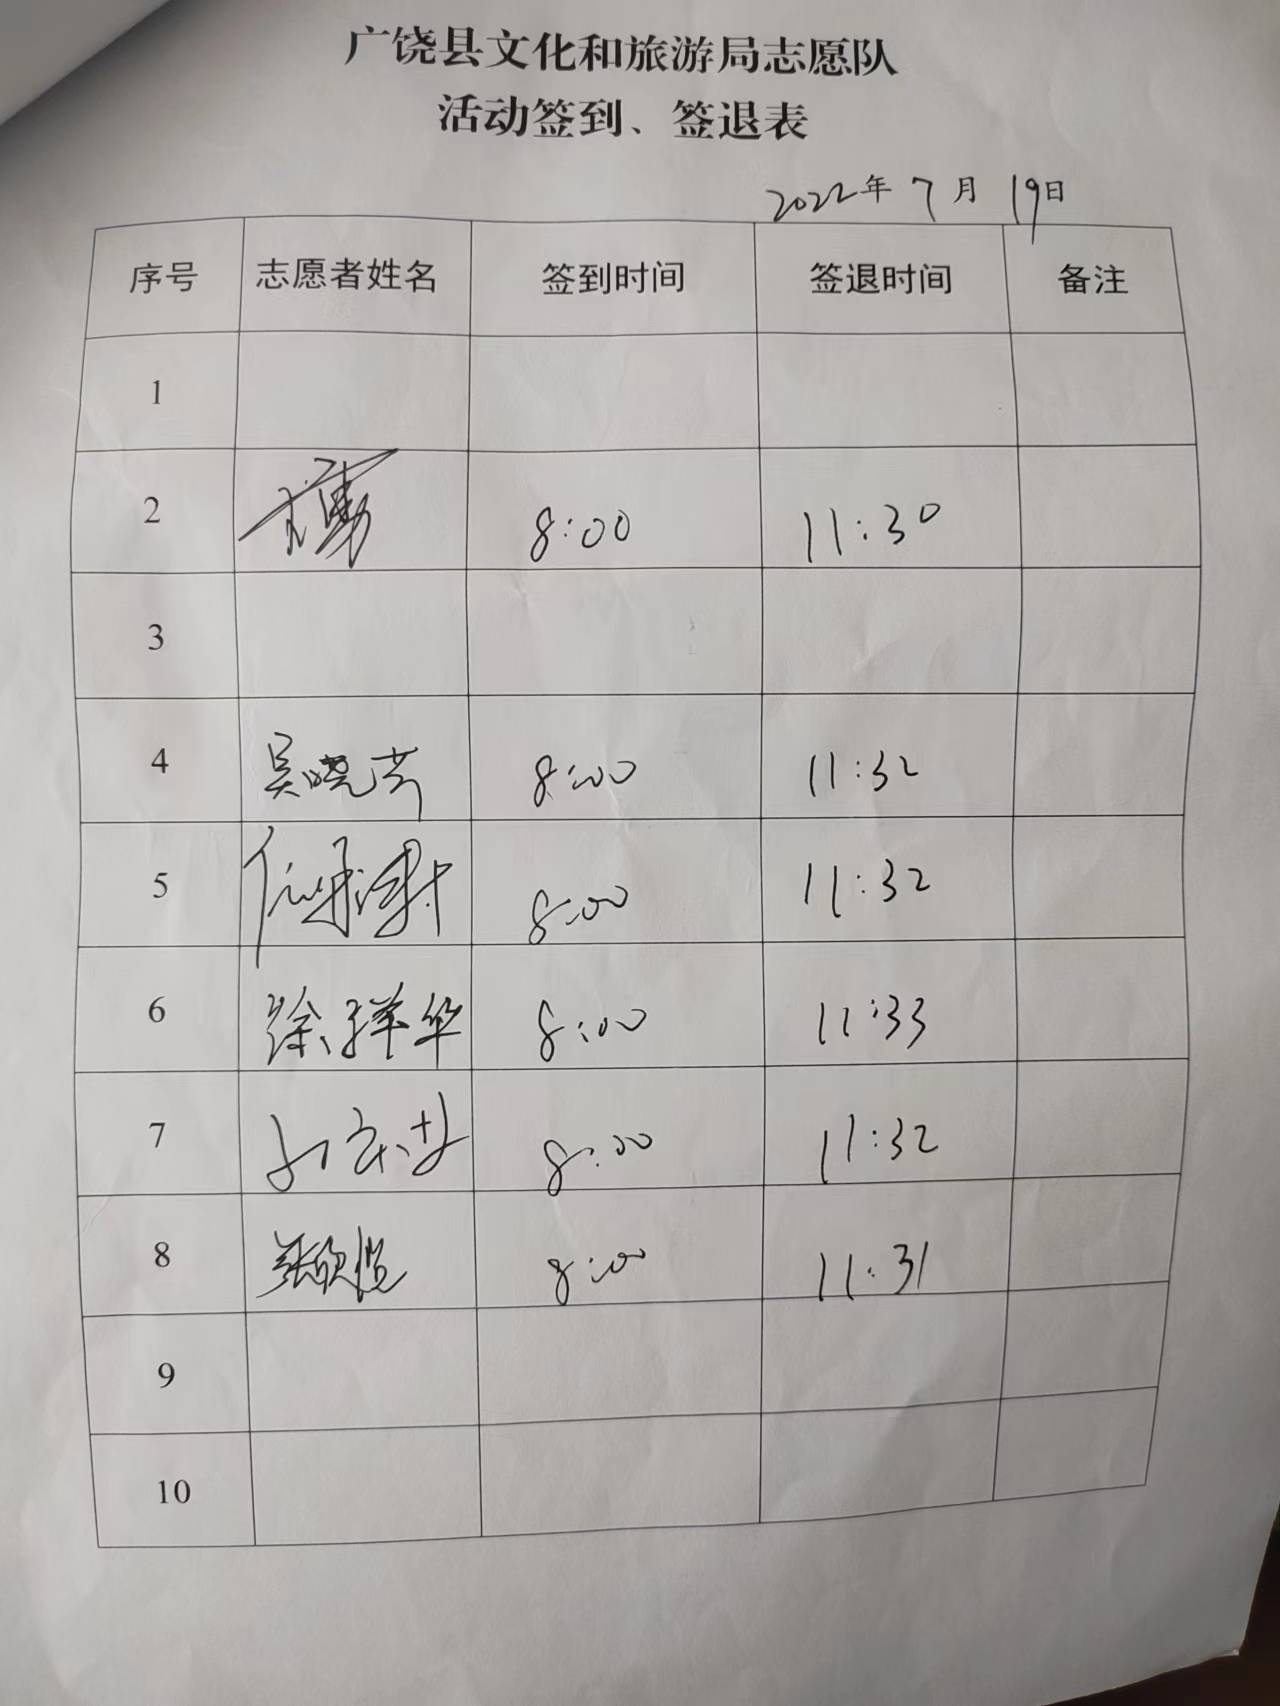 广饶县文化和旅游局志愿队
活动签到、签退表
2022年 7月 19日
序号 志愿者姓名 签到时间 签退时间 备注
1
2 8:00 11:30
3
4 吴晓芳 8:00 11:32
5 8:00 11:32
6 徐祥华 8:00 11:33
7 8:00 11:32
8 张欣悦 8:00 11:31
9
10